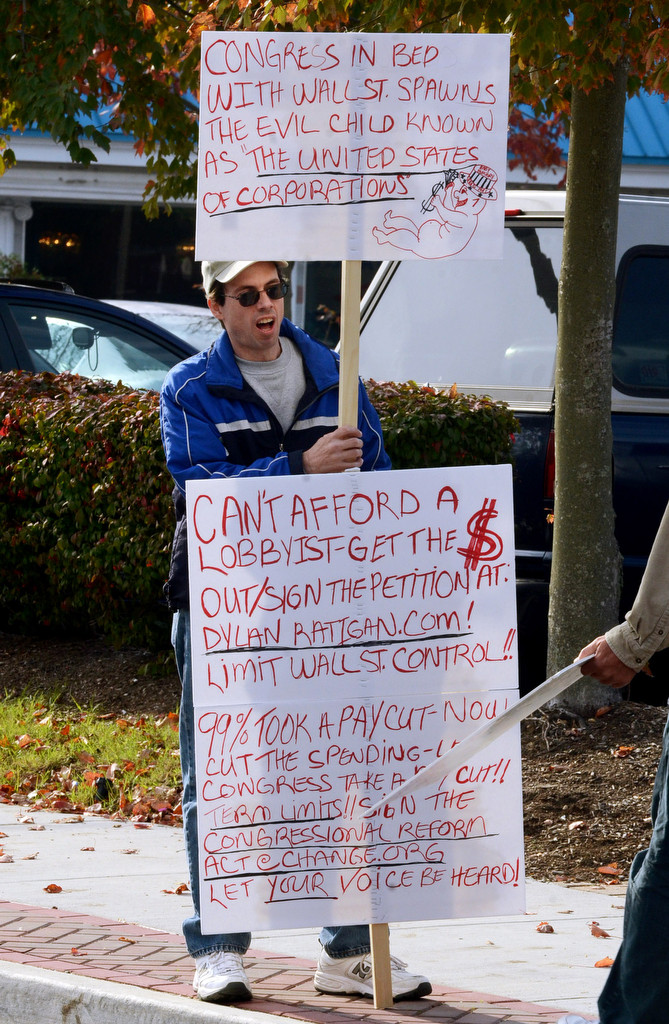 CONGRESS IN BED
WITH WALL ST. SPAWNS
THE EVIL CHILD KNOWN
AS "THE UNITED STATES
OF CORPORATIONS"
CAN'T AFFORD A
LOBBYIST-GET THE $
OUT/SIGN THE PETITION AT:
DYLAN RATIGAN.COM!
LIMIT WALL ST. CONTROL!!
99% TOOK A PAY CUT-NOW
CUT THE SPENDING-
CONGRESS TAKE A CUT!!
TERM LIMITS!! SIGN THE
CONGRESSIONAL REFORM
ACT @ CHANGE.ORG
LET YOUR VOICE BE HEARD!